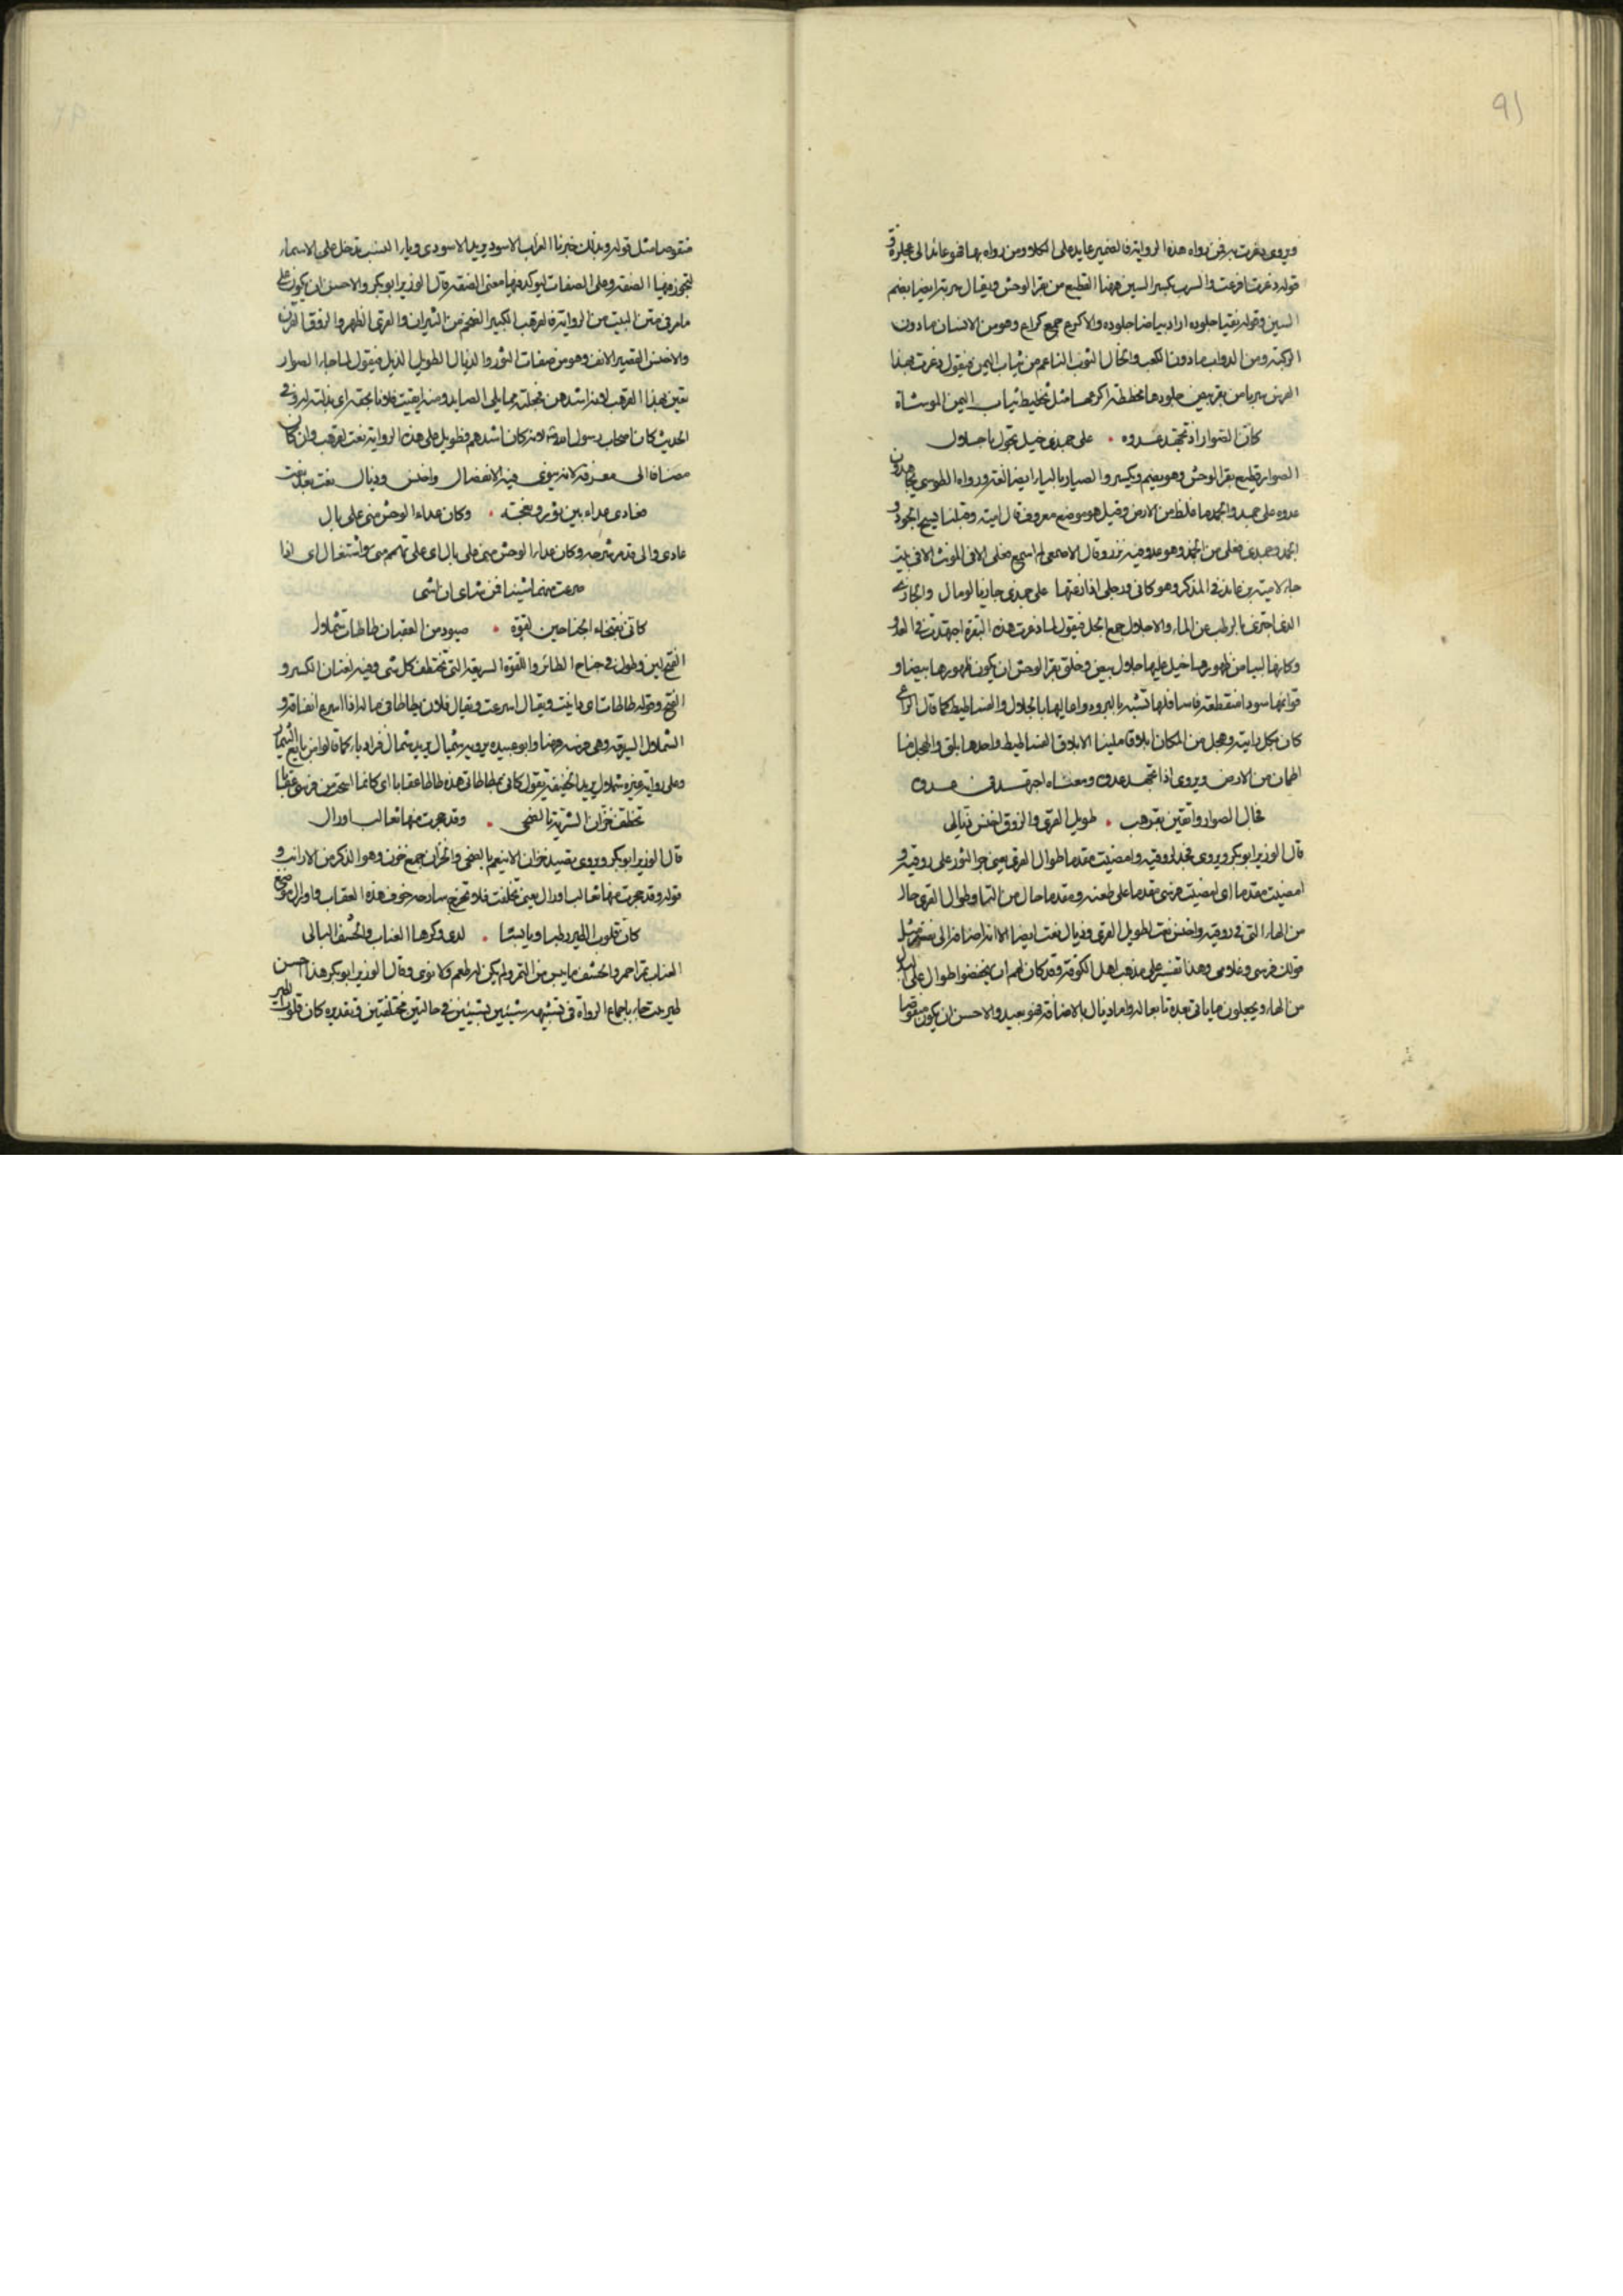 ويروى ذعرت به فمن رواه هذه الرواية فالضمير عايد على الكلا ومن رواه بها فهو عائد الى عجلزة و
قوله ذعرت افزعت والسرب بكسر السين ههنا القطيع من بقر الوحش ويقال سربة ايضا بضم
السين وقوله نقيا جلوده اراد بياضا جلوده والاكرع جمع كراع وهو من الانسان ما دون
الركبة ومن الدواب ما دون الكعب والخال الثوب الناعم من ثياب اليمن فيقول ذعرت بهذا
الفرس سربا من بقر بيض جلودها مخططة اكرعها مثل تخطيط ثياب اليمن الموشاة
كأن الصوار اذ تجهد عدوه • على جمزى خيل تجول باجلال
الصوار قطيع بقر الوحش وهو بضم ويكسر والصيار بالياء ايضا لغة ورواه الطوسي يجاهدن
عدوه على جمد والجمد ما غلظ من الارض وقيل هو موضع معروف قال امية وقبلنا سبح الجودي و
الجمد وجمزى فعلى من الجمز وهو عدو فيه نزو وقال الاصمعي لم اسمع فعلى الا في المؤنث الا في بيت
جاء لامية بن عائذ في المذكر وهو كاني ورحلي اذا زعتها على جمزى جازئ بالرمال والجازئ
الذي اجتزى بالرطب عن الماء والاجلال جمع الجل فيقول لما ذعرت هذه البقرة اجتهدت في العدو
وكانها لبياض ظهورها خيل عليها جلال بيض وخلق بقر الوحش ان يكون ظهورها بيضا و
قوائمها سودا منقطعة فاسافلها تشبه بالبرود واعاليها بالجلال والفساطيط كما قال الراعي
كان بكل رابية وهجل من الكتان ابلاقا بنينا الابلاق الفساطيط واحدها بلق والهجل ما
اطمان من الارض ويروى اذا تجهد عدوه ومعناه اجتهد في عدوه
فجال الصوار واتقين بقرهب • طويل القرى والروق اخنس ذيال
قال الوزير ابو بكر ويروى فخر لروقيه وامضيت مقدما طوال القرى يعني خر الثور على روقيه و
امضيت مقدما اي امضيت فرسي مقدما على طعنه ومقدما حال من التاء وطوال القرى حال
من الهاء التي في روقيه واخنس نعت لطويل القرى وذيال نعت ايضا الا انه اضافه الى نفسه مثل
قولك فرسي وغلامي وهذا تفسير على مذهب اهل الكوفة وقد كان لهم ان يخفضوا طوال على البدل
من الهاء ويجعلون ما ياتي بعده تابعا له واما ذيال بالاضافة فهو بعيد والاحسن ان يكون منقوصا
منقوصا مثل قوله وبذلك خبرنا الغراب الاسود يريد الاسودي وياء النسب تدخل على الاسماء
لتجوز فيها الصفة وعلى الصفات ليوكد فيها معنى الصفة قال الوزير ابو بكر والاحسن ان يكون على
ما مر في متن البيت من الرواية فالقرهب الكبير الضخم من الثيران والقرى الظهر والروق القرن
والاخنس القصير الانف وهو من صفات الثور والذيال الطويل الذيل فيقول لما جاء الصوار
تقين بهذا القرهب لانه اشدهن فجعلنه مما يلي الصايد ومنه اتقيت فلانا بحقه اي بذلته له وفي
الحديث كان اصحاب رسول الله لانه كان اشدهم فطويل على هذه الرواية نعت لقرهب وان كان
مضافا الى معرفة لانه ينوى فيه الانفصال واخنس وذيال نعت بعد نعت
فعادى عداء بين ثور ونعجة • وكان عداء الوحش مني على بال
عادى والى قد مر شرحه وكان عداء الوحش مني على بال اي على تاهم مني واشتغال اي اذا
صرعت منهما شيئا فمن شاى ان اثني
كاني بفتخاء الجناحين لقوة • صيود من العقبان طاطات شملال
الفتخ لين وطول في جناح الطائر واللقوة السريعة التي تختطف كل شيء وفيه لغتان الكسر و
الفتح وقوله طاطات اي دانيت ويقال اسرعت ويقال فلان يطاطئ في ماله اذا اسرع انفاقه و
الشملال السريعة وهي فرسه ههنا وابو عبيدة يرويه شيمال يريد شمال فزاد ياء كما قالوا من بايع الشيمال
وعلى رواية غيره شملال يريد الخفيفة يقول كاني بطاطاتي هذه طاطا عقابا اي كانما استحثثت من فرسي عقابا
تخطف خزان الشربة بالضحى • وقد حجرت منها ثعالب اورال
قال الوزير ابو بكر ويروى يصيد خزان الانيعم بالضحى والخزان جمع خزز وهو الذكر من الارانب و
قوله وقد حجرت منها ثعالب اورال يعني تخلفت فلا تخرج سارحه خوف هذه العقاب واورال موضع
كان قلوب الطير رطبا ويابسا • لدى وكرها العناب والحشف البالي
العناب ثمر احمر والحشف ما يبس من التمر ولم يكن له طعم ولا نوى وقال الوزير ابو بكر هذا احسن
باجماع الرواة في تشبيه شيئين بشيئين في حالتين مختلفتين وتقديره كان قلوب الطير